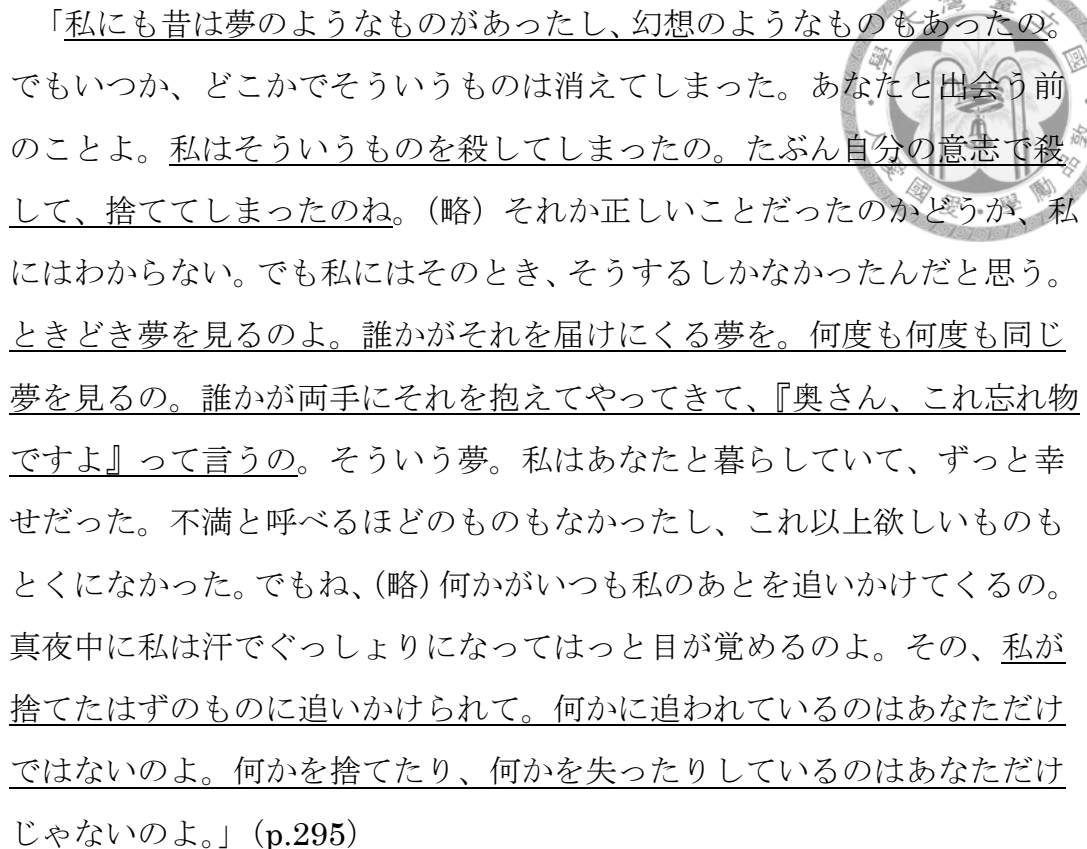 「私にも昔は夢のようなものがあったし、幻想のようなものもあったの。
でもいつか、どこかでそういうものは消えてしまった。あなたと出会う前
のことよ。私はそういうものを殺してしまったの。たぶん自分の意志で殺
して、捨ててしまったのね。(略) それか正しいことだったのかどうか、私
にはわからない。でも私にはそのとき、そうするしかなかったんだと思う。
ときどき夢を見るのよ。誰かがそれを届けにくる夢を。何度も何度も同じ
夢を見るの。誰かが両手にそれを抱えてやってきて、『奥さん、これ忘れ物
ですよ』って言うの。そういう夢。私はあなたと暮らしていて、ずっと幸
せだった。不満と呼べるほどのものもなかったし、これ以上欲しいものも
とくになかった。でもね、(略) 何かがいつも私のあとを追いかけてくるの。
真夜中に私は汗でぐっしょりになってはっと目が覚めるのよ。その、私が
捨てたはずのものに追いかけられて。何かに追われているのはあなただけ
ではないのよ。何かを捨てたり、何かを失ったりしているのはあなただけ
じゃないのよ。」(p.295)